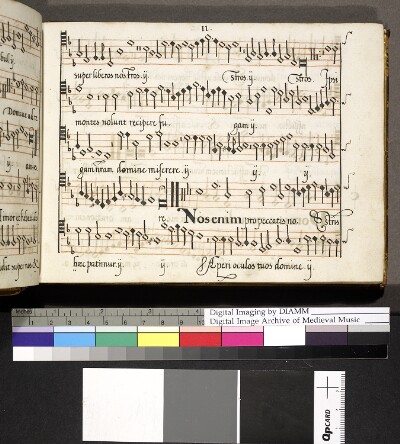 11.
super liberos nostros. ij. stros. ij. stros. Ipsi
montes nolunt recipere fu gam ij.
gam nram domine miserere. ij. ij. ij.
re Nos enim pro peccatis no. stros
hec patimur. ij. ij. Aperi oculos tuos domine. ij.
Digital Imaging by DIAMM
Digital Image Archive of Medieval Music
QPCARD